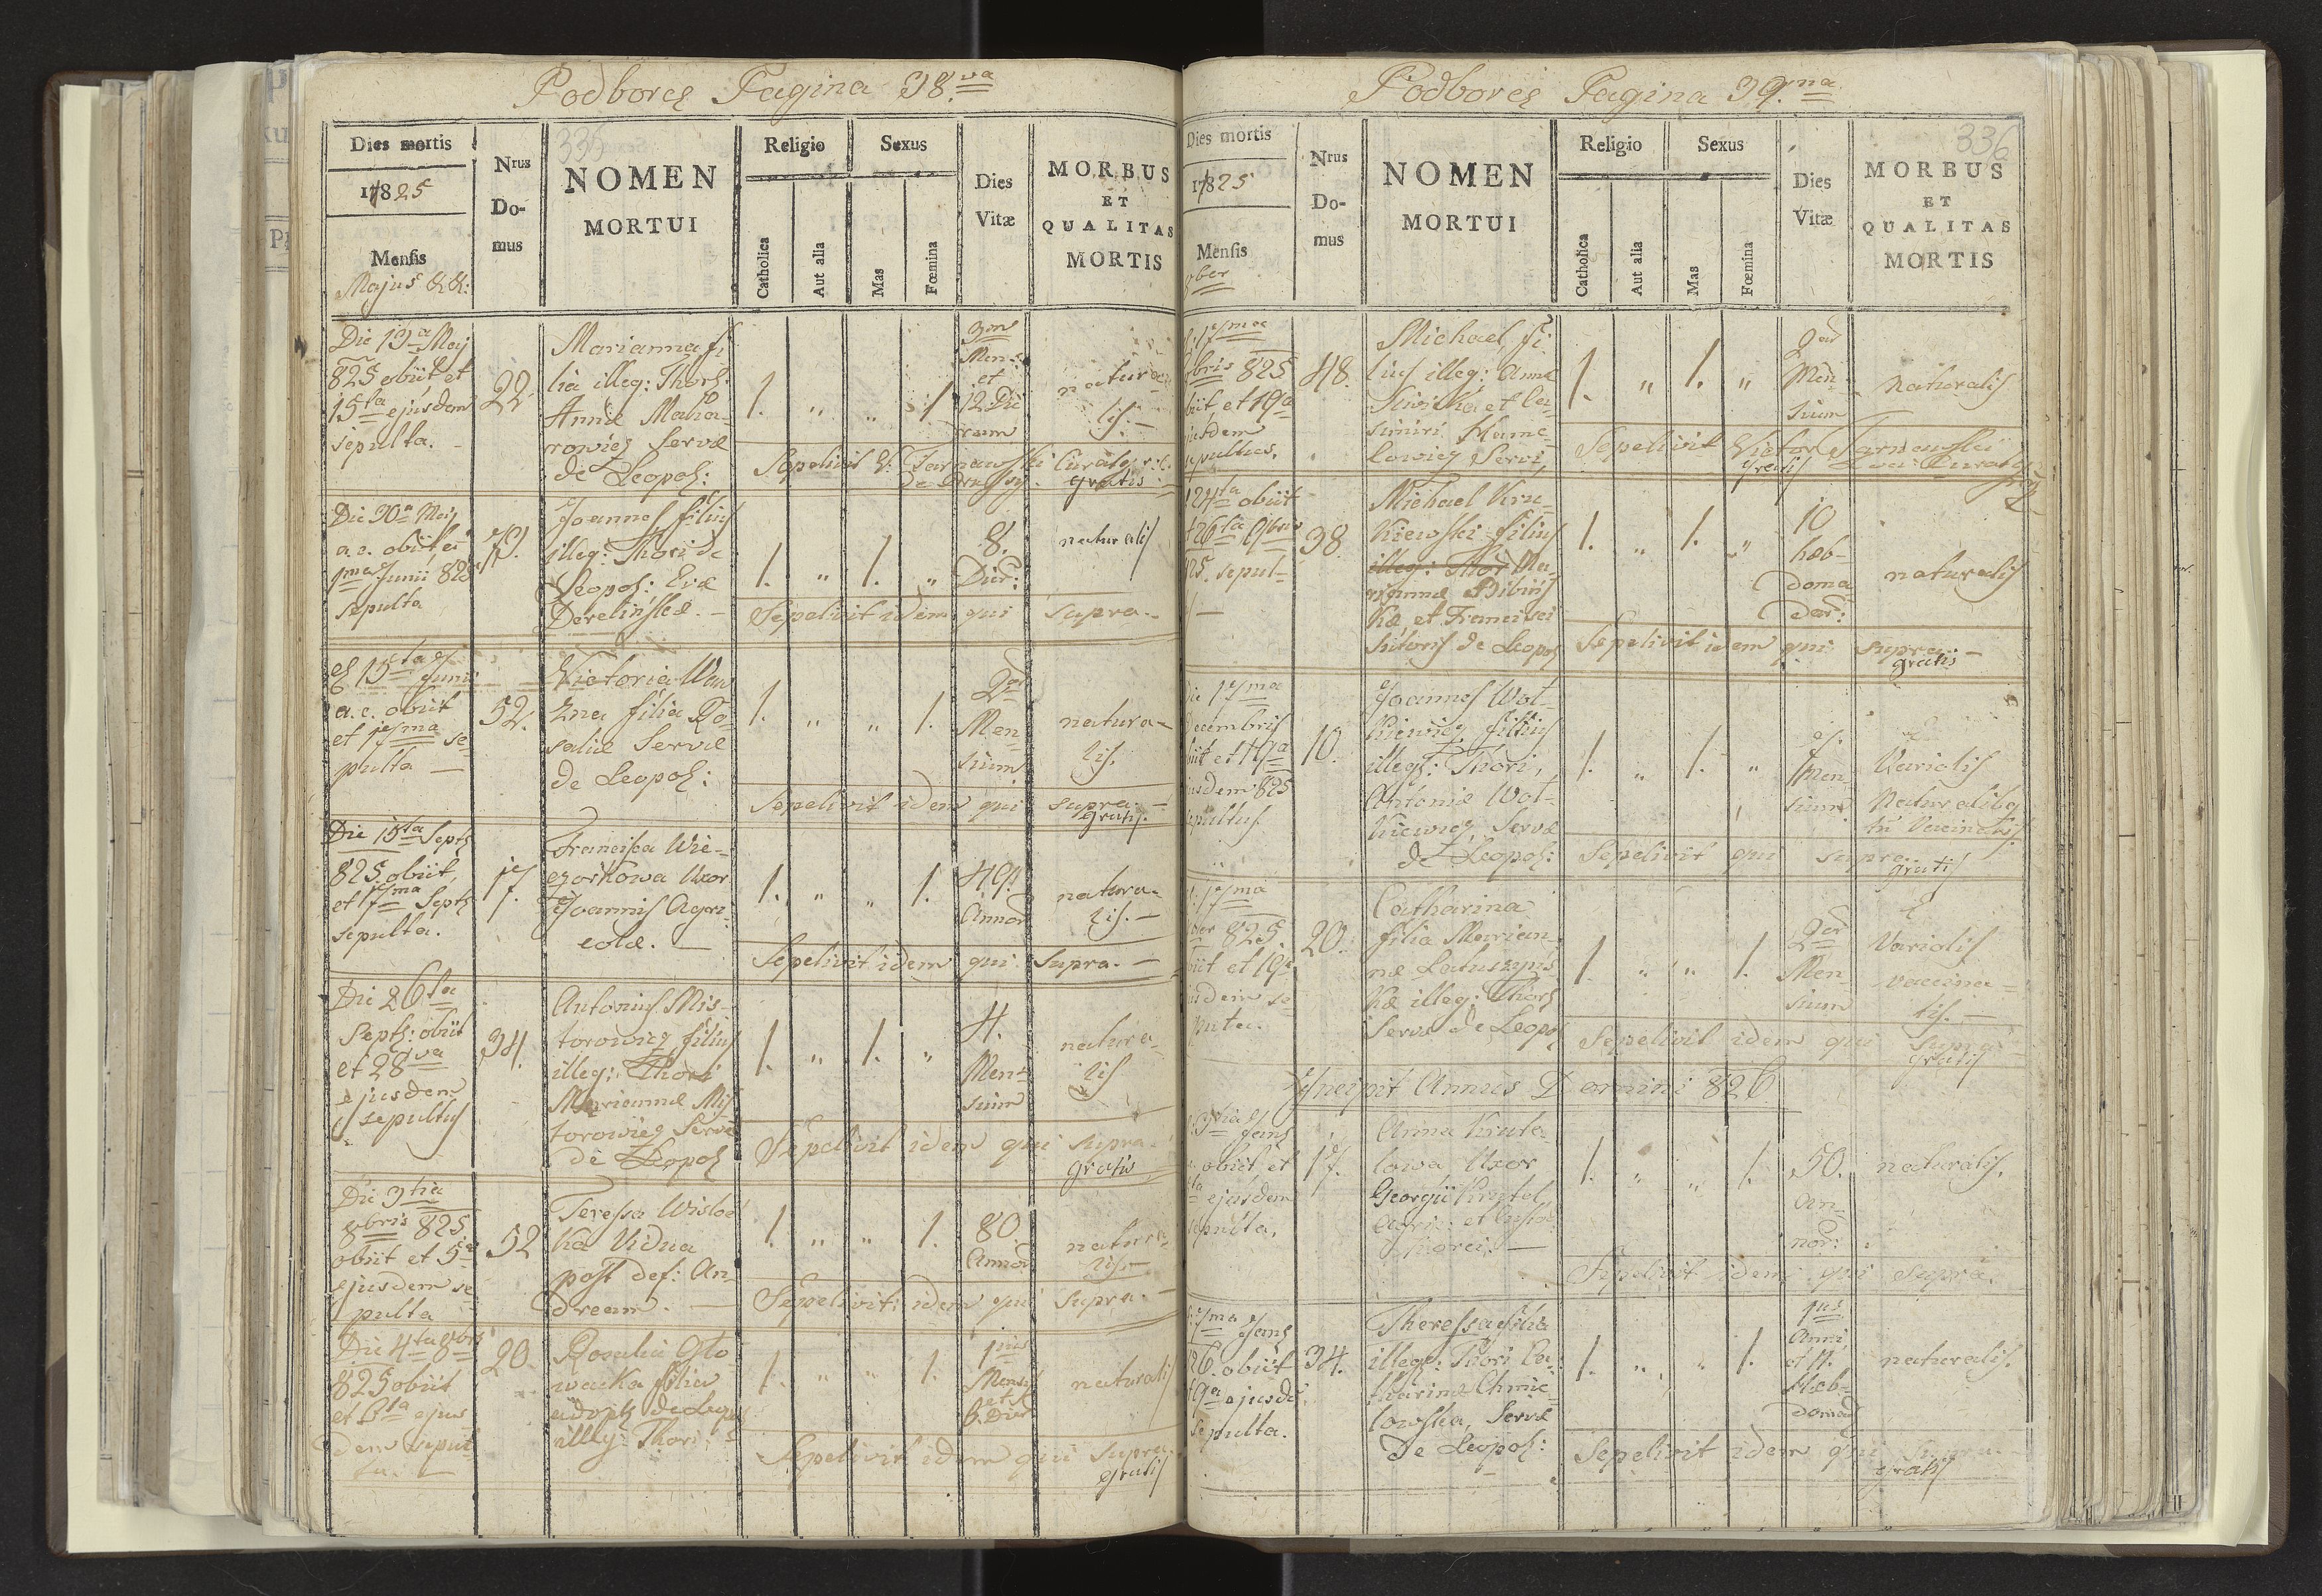 Podborce Pagina 38.va
Dies mortis
1825
Mensis
Majus
Nrus
Do-
mus
335
NOMEN
MORTUI
Religio
Sexus
Catholica
Aut alia
Mas
Fœmina
Dies
Vitæ
MORBUS
ET
QUALITAS
MORTIS
Die 13a Maj
825 obiit et
15ta ejusdem
sepulta.
22.
Marianna fi
lia illeg: Thori:
Annæ
rowicz Servæ
de Leopol:
1. " " 1
Men
et
12. Die
rum
natura
lis.
Sepelivit V. Tarnawski Curator
gratis
Die 30a Maij
a. c. obiit, et
1ma Junii 825
sepulta
Joannes filius
illeg: Thori de
Leopol: Evæ
1. " 1. "
8.
Dier:
naturalis
Sepelivit idem qui supra.
15ta Junii
a. c. obiit
et 17ma se
pulta
52.
Victoria
filia Ro
saliæ Servæ
de Leopol:
1. " " 1.
2or
Men
sium
natura
lis.
Sepelivit idem qui supra.
gratis.
Die 15ta Septb
825 obiit,
et 17ma Septb
sepulta.
17.
Francisca Wie-
czorkowa Uxor
Joannis Agri
colæ.
1. " " 1.
49.
Annor
natura-
lis.
Sepelivit idem qui supra.
Die 26ta
Septb: obiit
et 28va
ejusdem
sepultus
34.
Antonius Mis-
torowicz filius
illeg: Thori
Mariannæ Mis
torowicz Servæ
de Leopol
1. " 1. "
4.
Men
sium
natura-
lis
Sepelivit idem qui supra.
gratis
Die 3tia
8bris 825
obiit et 5ta
ejusdem se
pulta
52
Teressa Wisloc
ka Vidua
post def: An
dream.
1. " " 1.
80.
Annor
natura
lis
Sepelivit idem qui supra.
Die 4ta 8bris
825 obiit
et 6ta ejus
dem sepul
ta.
20.
Rosalia Glo
wacka filia
illeg: Thori:
1. " " 1.
1ius
Mensis
et
6. Dier
naturalis
Sepelivit idem qui supra.
gratis
Podborce Pagina 39.na
336
Dies mortis
1825
Mensis
Nrus
Do-
mus
NOMEN
MORTUI
Religio
Sexus
Catholica
Aut alia
Mas
Fœmina
Dies
Vitæ
MORBUS
ET
QUALITAS
MORTIS
17ma
bris 825
biit, et 19a
jusdem
epultus,
48.
Michael, fi
lius illeg: Annæ
et Ca
simiri
lowicz, Servi,
1. " 1. "
2or
Men
sium
naturalis
Sepelivit Victor Tarnawski
gratis
24ta obiit
26ta 9bris
825. sepul-
38.
Michael Kru
kiewski filius
illeg: Thor Ma-
riannæ
kæ, et Francisci
Sutoris de Leopol
1. " 1. "
10
heb-
doma
dar:
naturalis
Sepelivit idem qui supra
gratis
Die 17ma
Decembris
biit et 19a
jusdem 825
epultus.
10.
Joannes Wot-
kiewicz filius
illeg: Thori,
Antoniæ Wot-
kiewicz, Servæ
de Leopol:
1. " 1. "
7.
Men
sium
Variolis
Naturalibg
Sepelivit qui supra.
gratis
17ma
825
biit et 19a
jusdem se
pulta.
20.
Catharina
filia Marian
næ
kæ illeg: Thori
Servæ de Leopol
1. " " 1.
2or
Men
sium
Variolis
vaccina
tis.
Sepelivit idem qui supra
gratis
Incipit Annus Domini 826
3tia Janii
obiit et
ejusdem
sepulta,
17.
Anna Krute-
lowa, Uxor
Georgii Krutel,
1. " " 1.
50.
An-
nor:
naturalis.
Sepelivit idem qui supra.
7ma Janii
26. obiit
9a ejusde
sepulta.
34.
Theressa filia
illeg: Thori Ca
tharinæ Chmie
lowska, Servæ
de Leopol:
1. " " 1.
1ius
Anni
et 11.
Heb-
domad
naturalis.
Sepelivit idem qui supra.
gratis